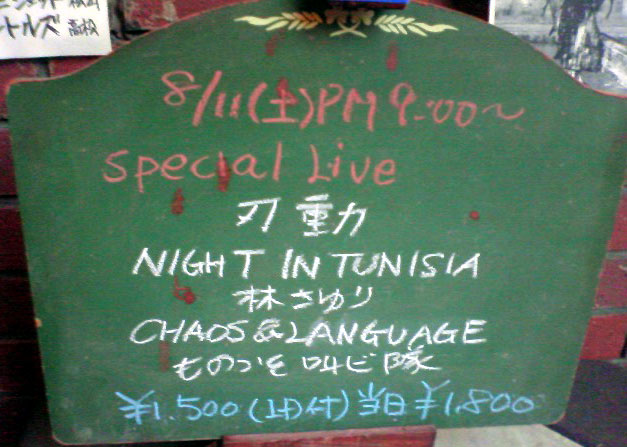 トルズ 高校
8/11(土)PM 9:00~
Special Live
刃 重力
NIGHT IN TUNISIA
林さゆり
CHAOS & LANGUAGE
ものっそ叫ビ隊
¥1.500(1D付)当日¥1.800